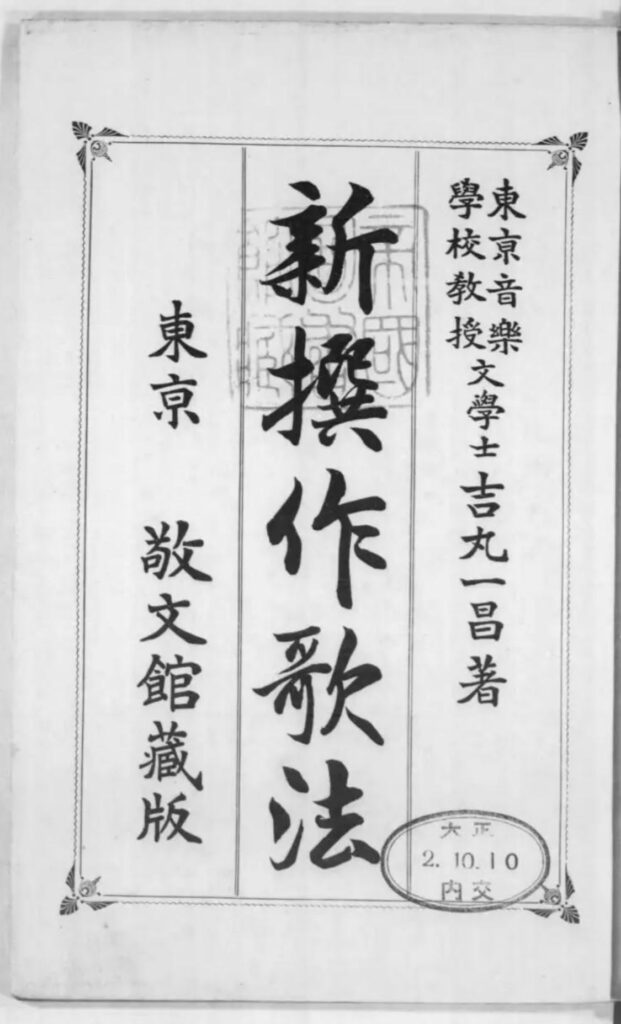 東京音樂
學校教授
文學士 吉丸一昌著
新撰作歌法
東京 敬文館藏版
大正
2.10.10
内交